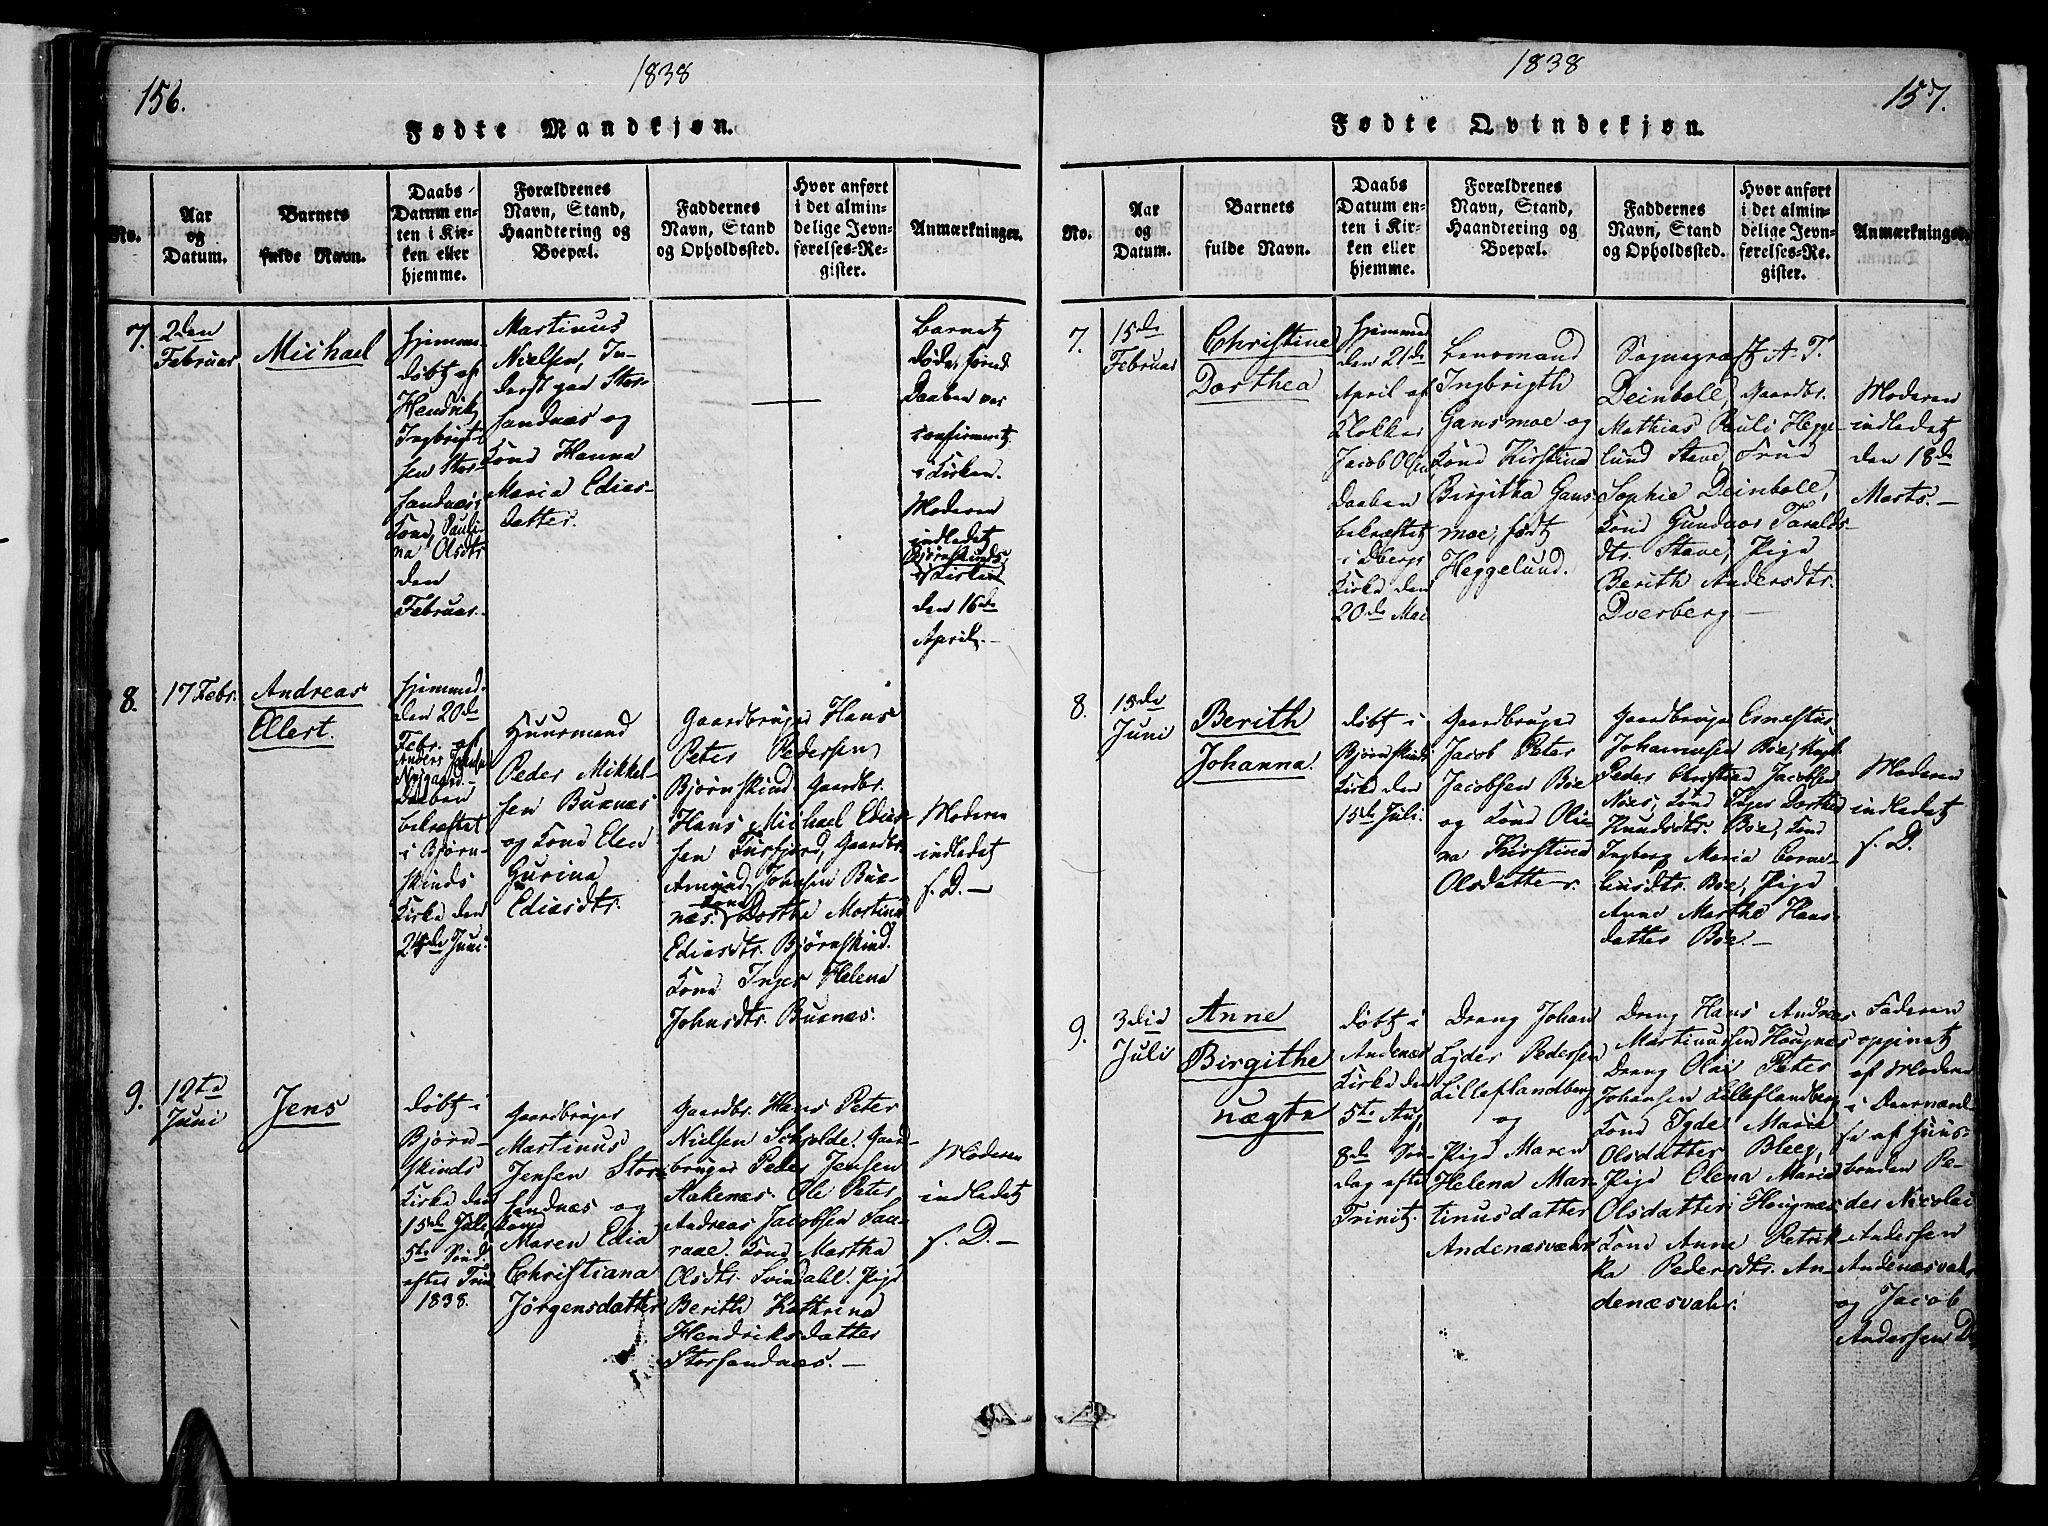 156.
1838
Fødte Mandkjøn.
No.
Aar
og
Datum.
Barnets
fulde Navn.
Daabs-
Datum en-
ten i Kir-
ken eller
hjemme.
Forældrenes
Navn, Stand,
Haandtering og
Boepæl.
Faddernes
Navn, Stand
og Opholdssted.
Hvor anført
i det almin-
delige Jevn-
førelses-Re-
gister.
Anmærkninger.
7.
2den
Februar
Michael
Hjemme-
døbt af
Hendrik
Ingbrigt-
sen Stor-
sandnæs,
Kone, Pauli-
na Olsdtr
den
Februar.
Martinus
Nielsen, In-
derst paa Stor-
sandnæs og
Kone Hanna
Maria Edias-
datter.
—
Barnet
døde, hvind
Daaben var
confirmeret
i Kirken.
Moderen
indledet
Bjørnskinds
Kirke
den 16de
April.
8.
17 Febr.
Andreas
Ellert.
Hjemmed.
den 20de
Febr. af
Anders
Nygaard
Daaben
bekræftet
i Bjørn-
skinds
Kirke den
24de Juni.
Huusmand
Peder Mikkel-
sen Buenæs
og Kone Elen
Gurina
Ediasdtr.
Gaardbruger Hans
Peter Pedersen
Bjørnskind Gaardbr.
Hans Michael Edias-
sen Fusfjord, Gaardbr.
Amund Johnsen Bue-
næs. Kone Dorthe Martina
Ediasdtr. Bjørnskind.
Kone Inger Helena
Johnsdtr. Buenæs.
Moderen
indledet
s. D. —
9.
12te
Juni
Jens
døbt i
Bjørn-
skinds
Kirke den
15de Juli,
5te Sønd.
efter Trin
1838.
Gaardbruger
Martinus
Jensen Stor-
sandnæs og
Kone
Maren Edia
Christiana
Jørgensdatter
Gaardbr. Hans Peter
Nielsen Schjolde. Gaard-
bruger Peder Jensen
Aakenæs. Ole Peter
Andreas Jacobsen Sau-
raae. Kone Martha
Olsdtr. Svindahl. Pige
Berith Kathrina
Hendriksdatter
Storsandnæs. —
Moderen
indledet
s. D. —
1838
157.
Fødte Qvindekjøn.
No.
Aar
og
Datum.
Barnets
fulde Navn.
Daabs
Datum en-
ten i Kir-
ken eller
hjemme.
Forældrenes
Navn, Stand,
Haandtering og
Boepæl.
Faddernes
Navn, Stand
og Opholdssted.
Hvor anført
i det almin-
delige Jevn-
førelses-Re-
gister.
Anmærkninger.
7.
15de
Februar
Christine
Dorthea
Hjemmed
den 21de
April af
Klokker
Jacob Olsen
Daaben
bekræftet
i Dbergs
Kirke den
20de Mai
Lensmand
Ingbrigth
Gansmoe og
Kone Kirstina
Birgitha Gans-
moe, født
Heggelund.
Sognepræst A T.
Deinboll, Gaardbr.
Mathias Pauli Hegge-
lund Stave, Frue
Sophie Deinboll,
Kone Gundnor Taralds-
dtr. Stave, Pige
Berith Andersdtr.
Dverberg —
Moderen
indledet
den 18de
Marts. —
8.
15de
Juni
Berith
Johanna.
døbt i
Bjørnskinds
Kirke den
15de Juli.
Gaardbruger
Jacob Peter
Jacobsen Bøe
og Kone Oli-
na Kirstina
Olsdatter.
Gaardbruger Ernestus
Johannesen Bøe, Ungk.
Peder Christian Jacobsen
Nøss, Kone Inger Dorthea
Knudsdtr. Bøe, Kone
Ingberg Maria Corne-
liusdtr. Bøe, Pige
Anne Marthe Hans-
datter Bøe. —
Moderen
indledet
s. D.
9.
3die
Juli
Anne
Birgithe
uægte
døbt i
Andenæs
Kirke den
5te Aug,
8de Søn-
dag efter
Trinit.
Dreng Johan
Lyder Pedersen
Lilleflandberg
og
Pige Maren
Helena Mar-
tinusdatter
Andenæsvahr
Dreng Hans Andreas
Martinussen Hougnæs
Dreng Olai Peter
Johansen Lilleflandberg
Kone Igde Maria
Olsdatter Bleeg,
Pige Olena Maria
Olsdatter Hougnæs
Kone Anne Petrik-
ka Pedersdtr. An-
denæsvahr.
Faderen
opgivet
af Moderen
i Overværel-
se af Huus-
bonden Pe-
der Nicolai
Andersen
Andenæsvahr
og Jacob
Andersen